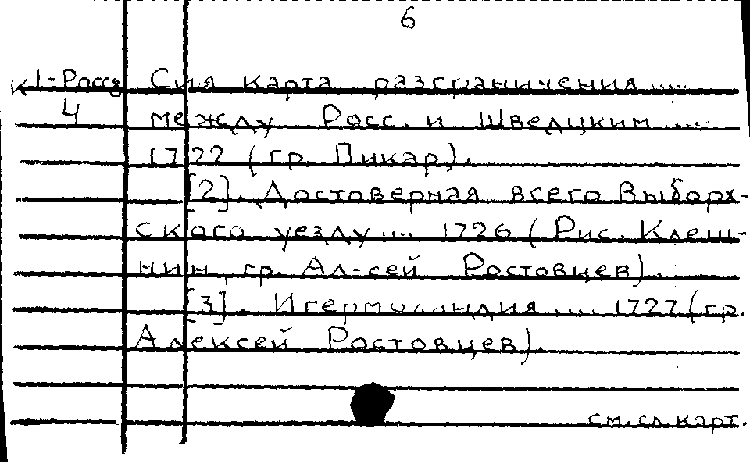 6
К1-Росс Сия карта разграничения....
4 между Росс. и Шведцким....
1722 (гр. Пикар).
[2]. Достоверная всего Выборх-
скаго уезду... 1726 (Рис. Клеш-
нин, гр. Ал-сей Ростовцев).
[3]. Ингермоландия.... 1727 (гр.
Алексей Ростовцев).
см. сл. карт.